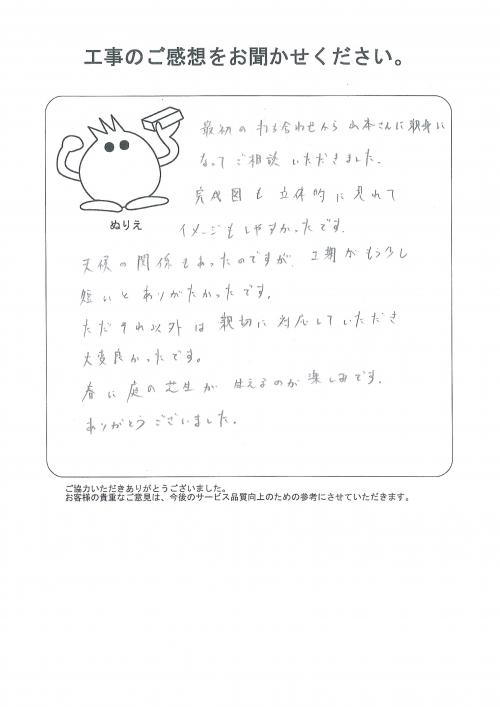 工事のご感想をお聞かせください。
最初の打ち合わせから山本さんに親身に
なってご相談いただきました。
完成図も立体的に見れて
イメージもしやすかったです。
ぬりえ
天候の関係もあったのですが、工期がもう少し
短いとありがたかったです。
ただそれ以外は親切に対応していただき
大変良かったです。
春に庭の芝生が生えるのが楽しみです。
ありがとうございました。
ご協力いただきありがとうございました。
お客様の貴重なご意見は、今後のサービス品質向上のための参考にさせていただきます。